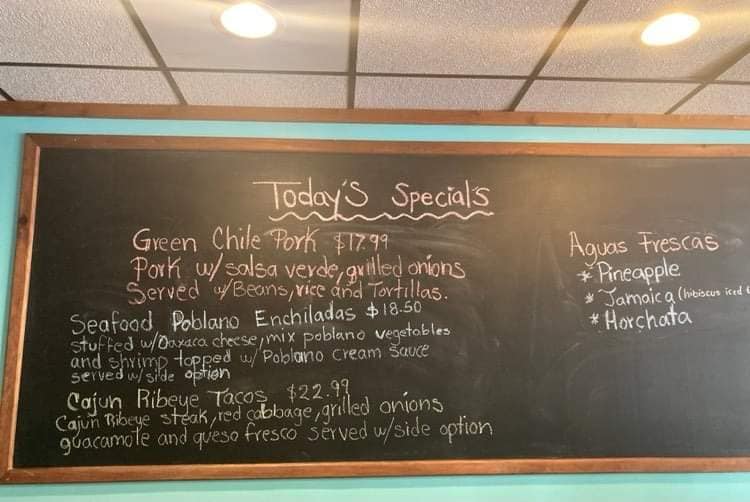 Today's Specials
Green Chile Pork $17.99
Pork w/ salsa verde, grilled onions
Served w/Beans, rice and Tortillas.
Seafood Poblano Enchiladas $18.50
stuffed w/Oaxaca cheese, mix poblano vegetables
and shrimp topped w/ Poblano cream sauce
served w/ side option
Cajun Ribeye Tacos $22.99
Cajun Ribeye steak, red cabbage, grilled onions
guacamole and queso fresco served w/side option
Aguas Frescas
* Pineapple
* Jamaica (hibiscus iced
* Horchata